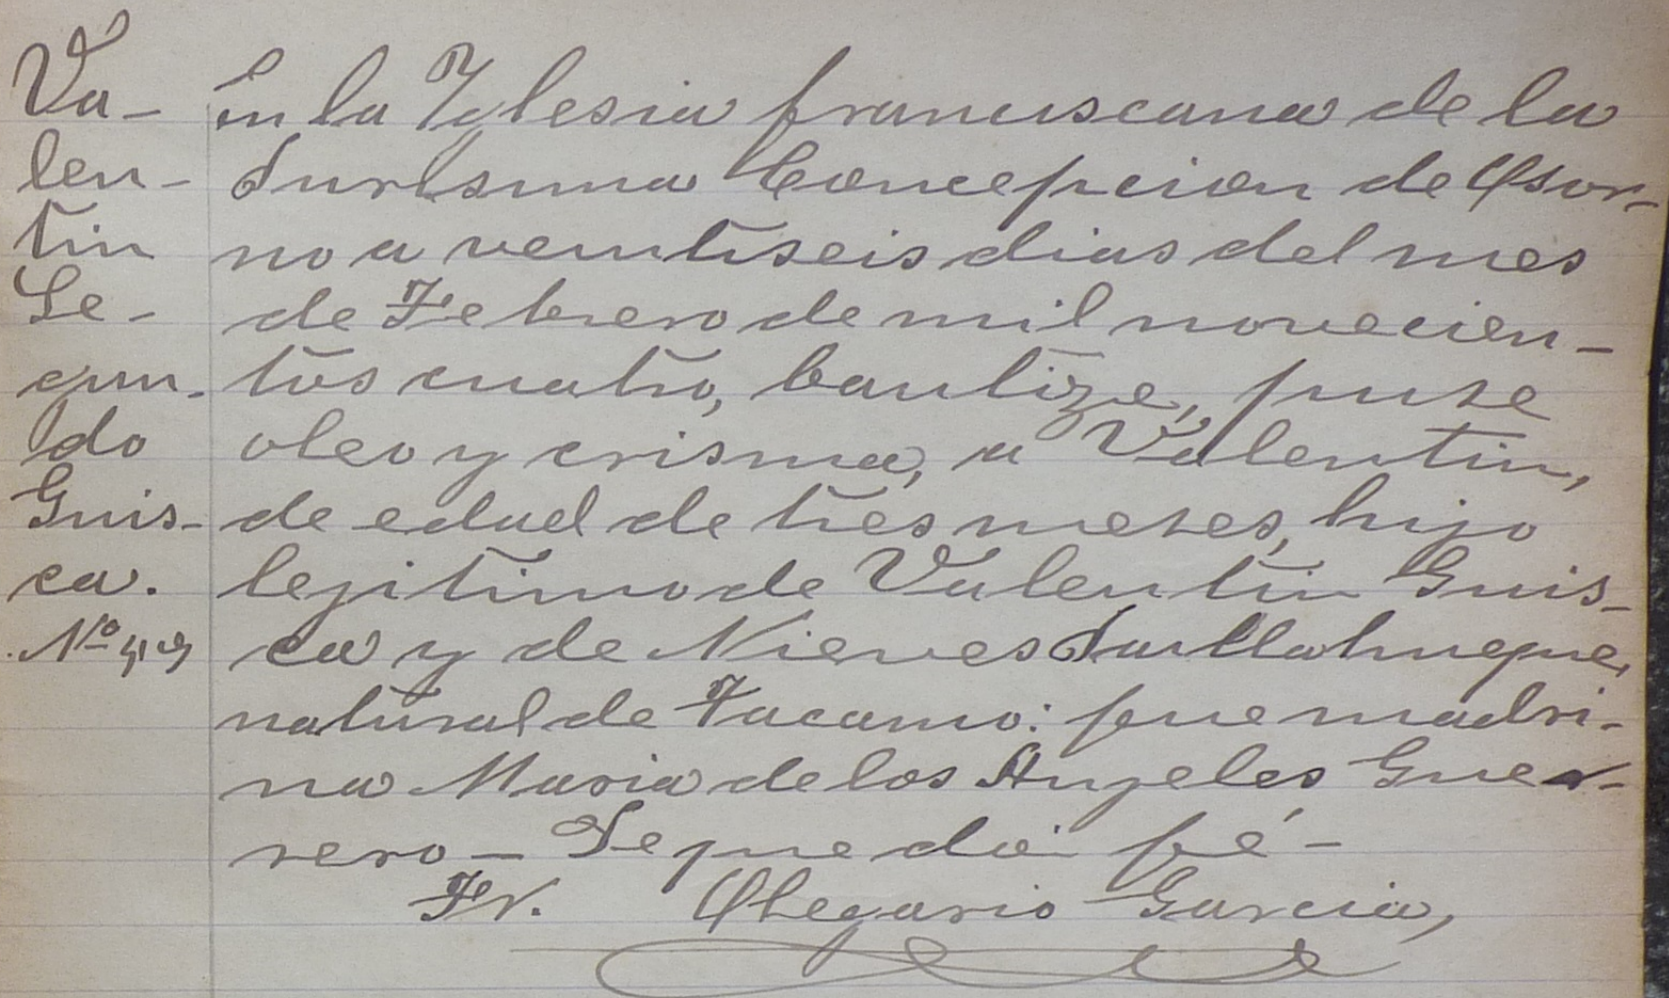 Va-
len-
tin
Se-
gun-
do
Guis-
ca.
Nº 49
En la Yglesia franciscana de la
Purisima Concepcion de Osor-
no a ventiseis dias del mes
de Febrero de mil novecien-
tos cuatro, bautizé, puse
oleo y crisma, a Valentin,
de edad de tres meses, hijo
lejitimo de Valentin Guis-
ca y de Nieves Paillahueque,
natural de Tacamo: fue madri-
na Maria de los Anjeles Guer-
rero — De que doi fé —
Fr. Olegario Garcia,